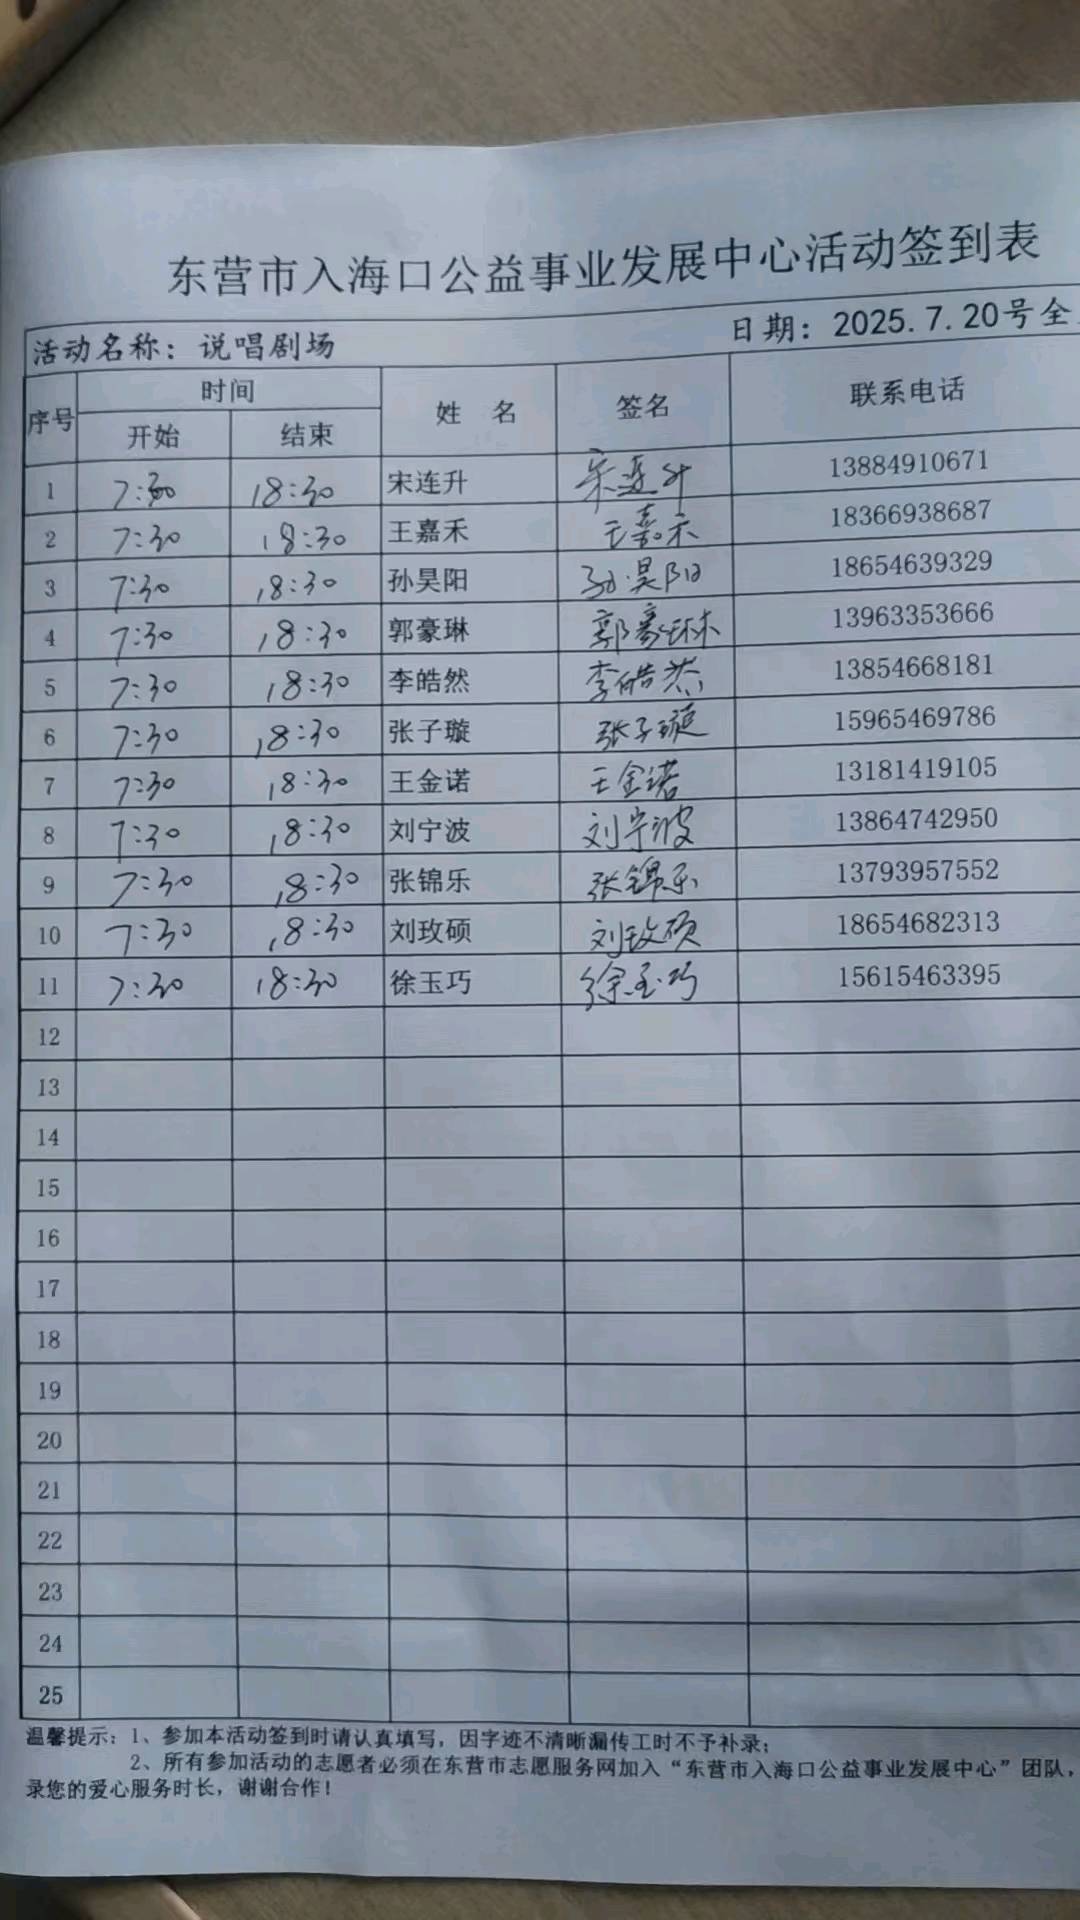 东营市入海口公益事业发展中心活动签到表
活动名称：说唱剧场 日期：2025.7.20号全
序号 时间 姓 名 签名 联系电话
开始 结束
1 7:30 18:30 宋连升 宋连升 13884910671
2 7:30 18:30 王嘉禾 王嘉禾 18366938687
3 7:30 18:30 孙昊阳 孙昊阳 18654639329
4 7:30 18:30 郭豪琳 郭豪琳 13963353666
5 7:30 18:30 李皓然 李皓然 13854668181
6 7:30 18:30 张子璇 张子璇 15965469786
7 7:30 18:30 王金诺 王金诺 13181419105
8 7:30 18:30 刘宁波 刘宁波 13864742950
9 7:30 18:30 张锦乐 张锦乐 13793957552
10 7:30 18:30 刘玫硕 刘玫硕 18654682313
11 7:30 18:30 徐玉巧 徐玉巧 15615463395
12
13
14
15
16
17
18
19
20
21
22
23
24
25
温馨提示：1、参加本活动签到时请认真填写，因字迹不清晰漏传工时不予补录；
2、所有参加活动的志愿者必须在东营市志愿服务网加入“东营市入海口公益事业发展中心”团队，
录您的爱心服务时长，谢谢合作！